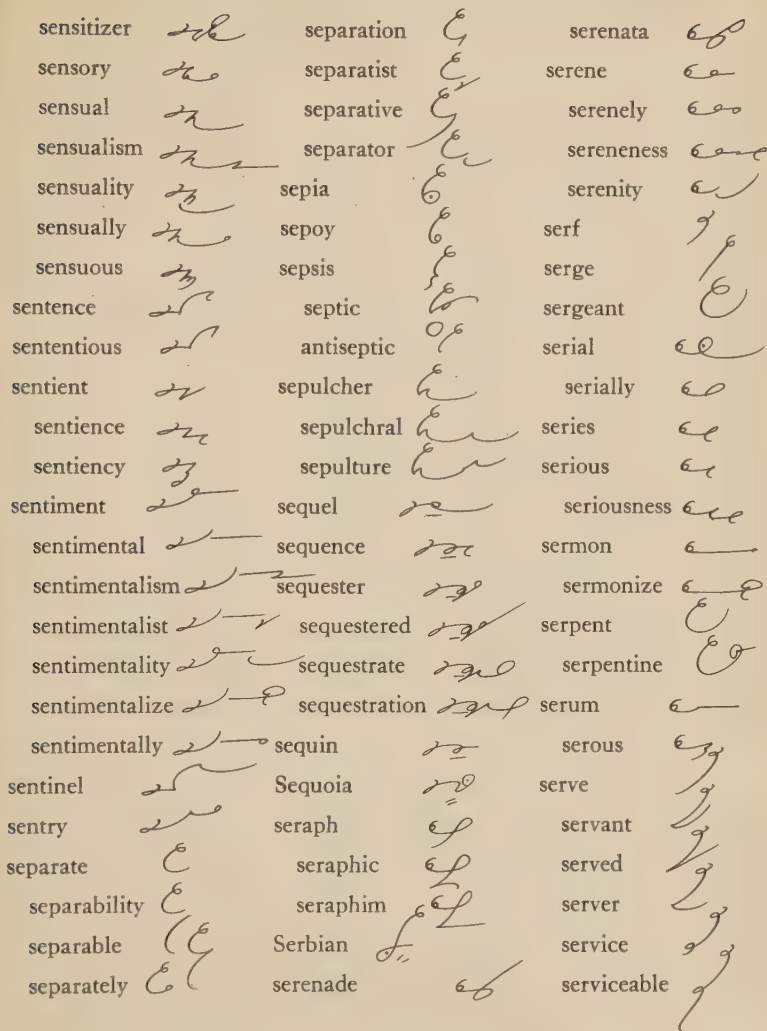 sensitizer
sensory
sensual
sensualism
sensuality
sensually
sensuous
sentence
sententious
sentient
sentience
sentiency
sentiment
sentimental
sentimentalism
sentimentalist
sentimentality
sentimentalize
sentimentally
sentinel
sentry
separate
separability
separable
separately
separation
separatist
separative
separator
sepia
sepoy
sepsis
septic
antiseptic
sepulcher
sepulchral
sepulture
sequel
sequence
sequester
sequestered
sequestrate
sequestration
sequin
Sequoia
seraph
seraphic
seraphim
Serbian
serenade
serenata
serene
serenely
sereneness
serenity
serf
serge
sergeant
serial
serially
series
serious
seriousness
sermon
sermonize
serpent
serpentine
serum
serous
serve
servant
served
server
service
serviceable